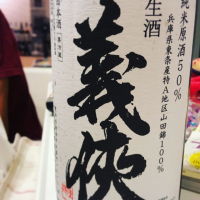 純米原酒50%
兵庫県東条産特A地区山田錦100%
生酒
義侠
日本酒